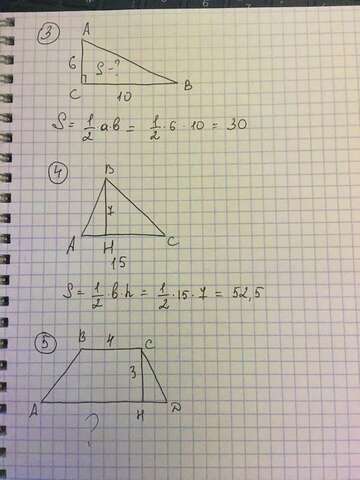 3
A
6
S-?
C
10
B
S = 1/2 a·b = 1/2 · 6 · 10 = 30
4
B
7
A
H
C
15
S = 1/2 · b · h = 1/2 · 15 · 7 = 52,5
5
B 4 C
3
A
H
D
?